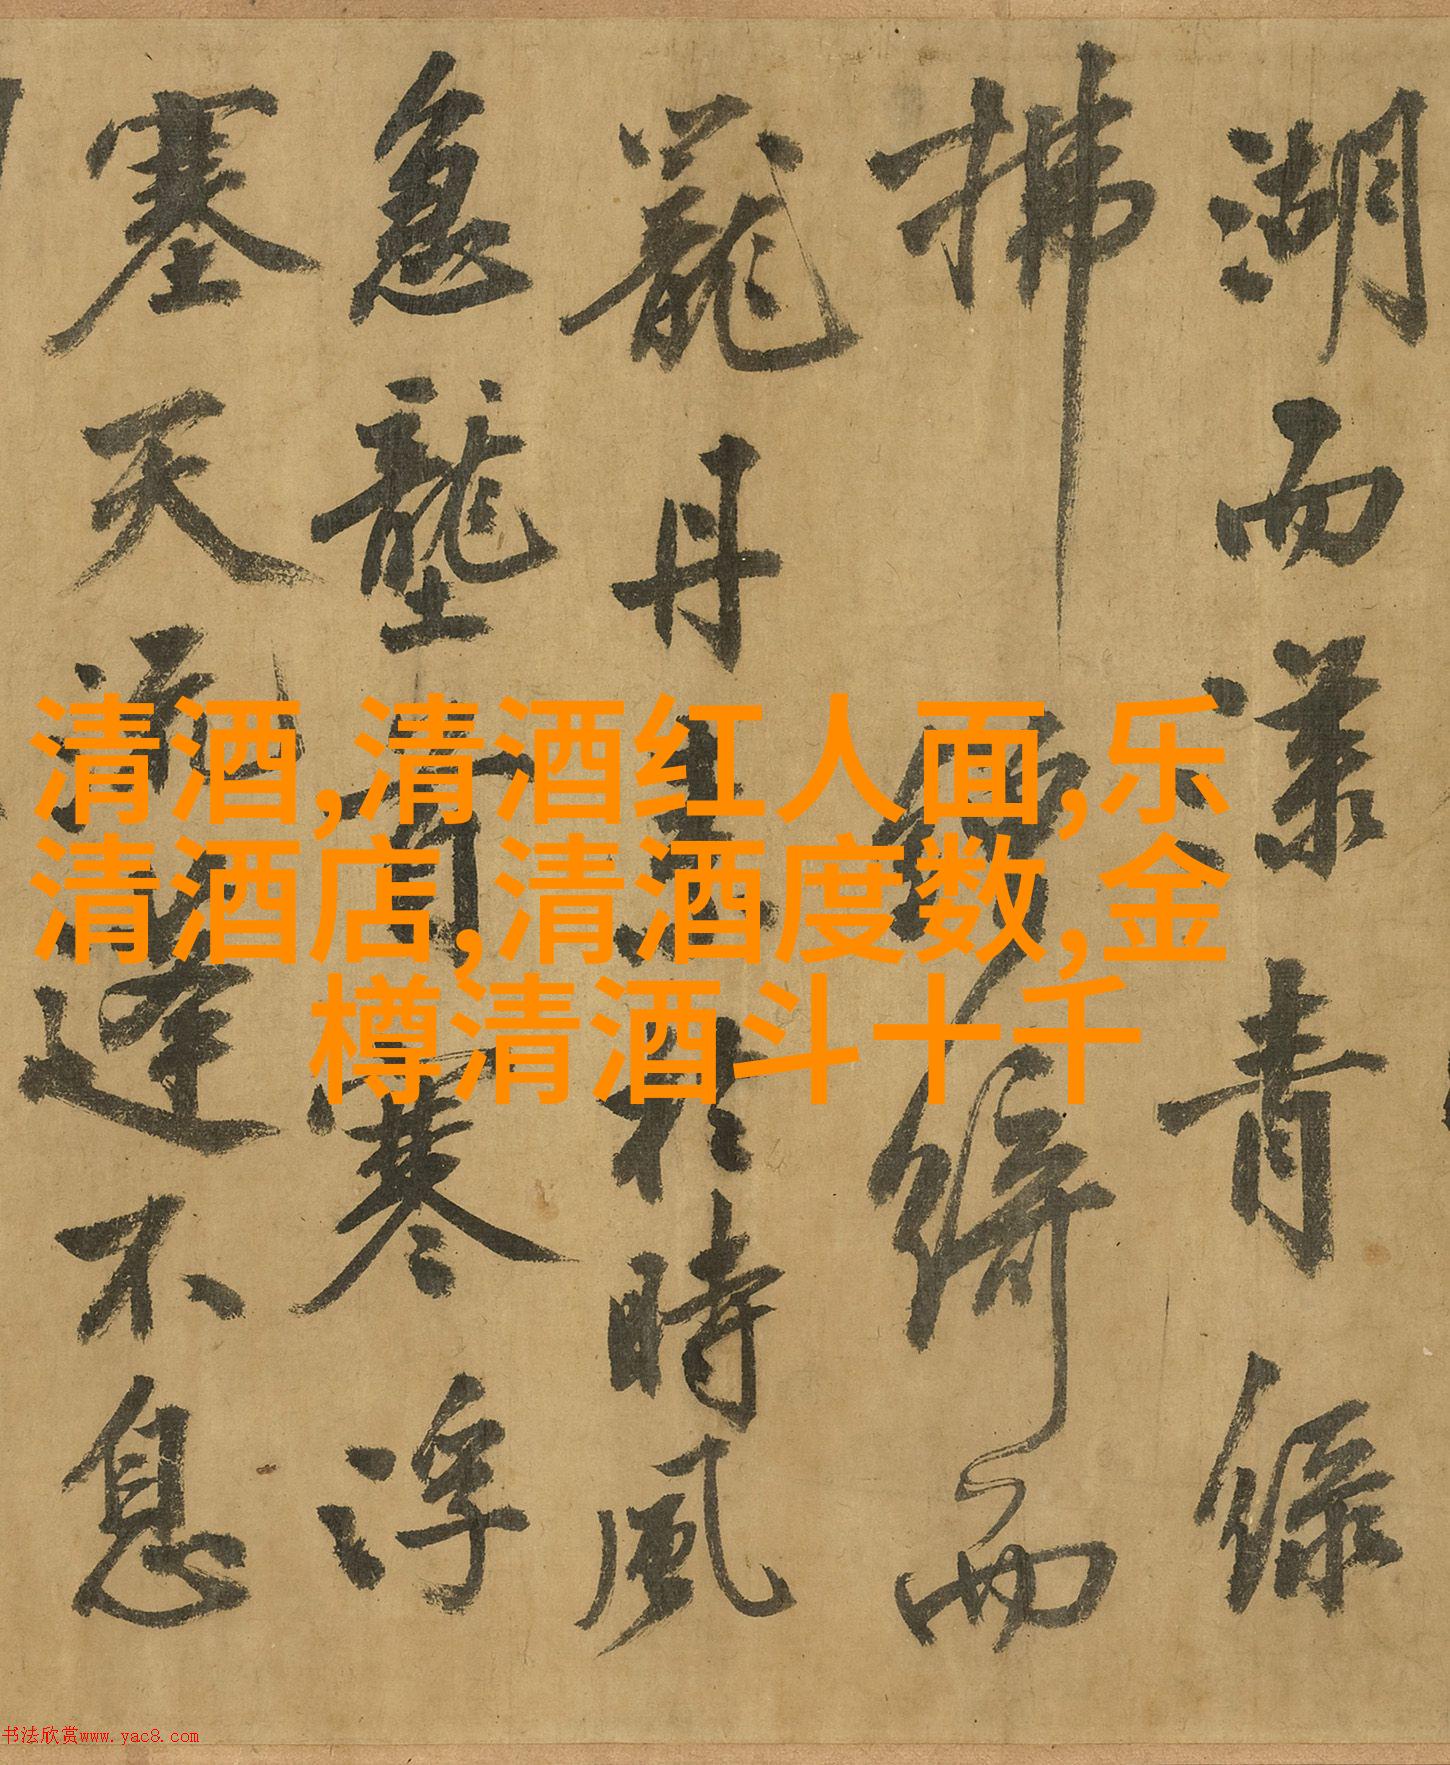 湖而漾青綠
拂綺而
蘢丹於時風
急壟首寒浮
塞天流不息
清酒,清酒红人面,乐
清酒店,清酒度数,金
樽清酒斗十千
书法欣赏www.yac8.com